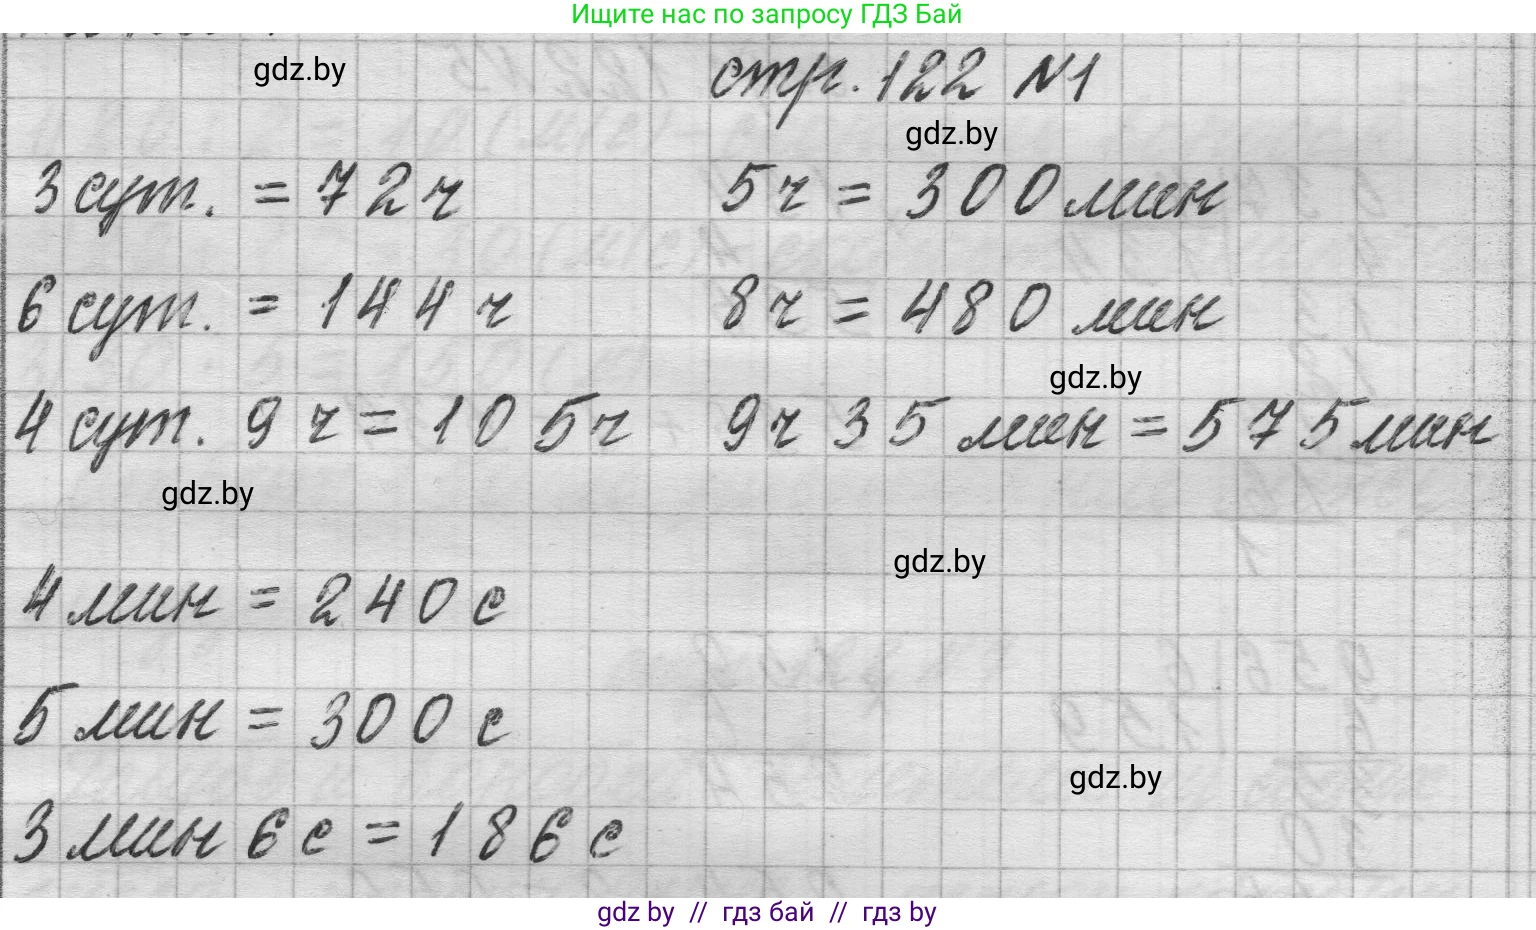 Ищите нас по запросу ГДЗ Бай
gdz.by
стр. 122 №1
gdz.by
3 сут. = 72 ч
5 ч = 300 мин
6 сут. = 144 ч
8 ч = 480 мин
gdz.by
4 сут. 9 ч = 105 ч
9 ч 35 мин = 575 мин
gdz.by
gdz.by
4 мин = 240 с
5 мин = 300 с
gdz.by
3 мин 6 с = 186 с
gdz by // гдз бай // гдз by